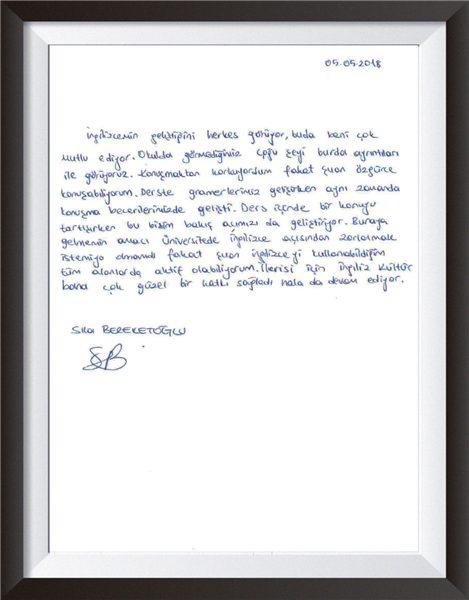 05.05.2018
İngilizcemin geliştiğini herkes görüyor, buda beni çok
mutlu ediyor. Okulda görmediğimiz çoğu şeyi burda ayrıntıları
ile görüyoruz. Konuşmaktan korkuyordum fakat şuan özgürce
konuşabiliyorum. Derste gramerlerimiz gelişirken aynı zamanda
konuşma becerilerimizde gelişti. Ders içinde bir konuyu
tartışırken bu bizim bakış açımızı da geliştiriyor. Buraya
gelmenin amacı üniversitede ingilizce açısından zorlatmak
istemiyo olmamdı fakat şuan ingilizceyi kullanabildiğim
tüm alanlarda aktif olabiliyorum. İlerisi için İngiliz Kültür
bana çok güzel bir katkı sağladı hala da devam ediyor.
Sıla BEREKETOĞLU
SB